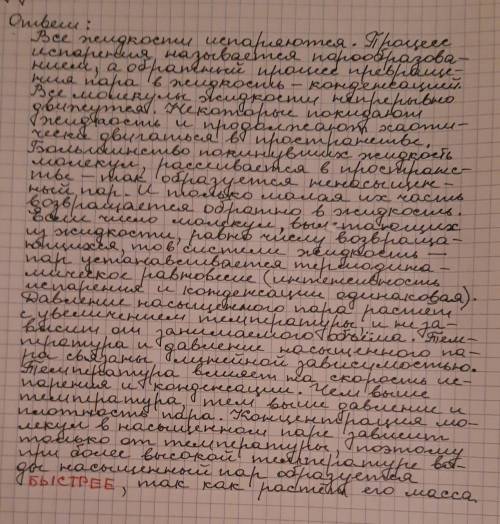 Ответ:
Все жидкости испаряются. Процесс
испарения называется парообразова-
нием, а обратный процесс превраще-
ния пара в жидкость – конденсацией.
Все молекулы жидкости непрерывно
движутся. Некоторые покидают
жидкость и продолжают хаоти-
чески двигаться в пространстве.
Большинство покинувших жидкость
молекул, рассеивается в пространс-
тве – так образуется ненасыщен-
ный пар. И только малая их часть
возвращается обратно в жидкость.
Если число молекул, вылетающих
из жидкости, равно числу возвраща-
ющихся, то в системе жидкость –
пар устанавливается термодина-
мическое равновесие (интенсивность
испарения и конденсации одинаковая).
Давление насыщенного пара растет
с увеличением температуры, и не за-
висит от занимаемого объёма. Тем-
пература и давление насыщенного па-
ра связаны линейной зависимостью.
Температура влияет на скорость ис-
парения и конденсации. Чем выше
температура, тем выше давление и
плотность пара. Концентрация мо-
лекул в насыщенном паре зависит
только от температуры, поэтому
при более высокой температуре во-
ды насыщенный пар образуется
БЫСТРЕЕ, так как растёт его масса.